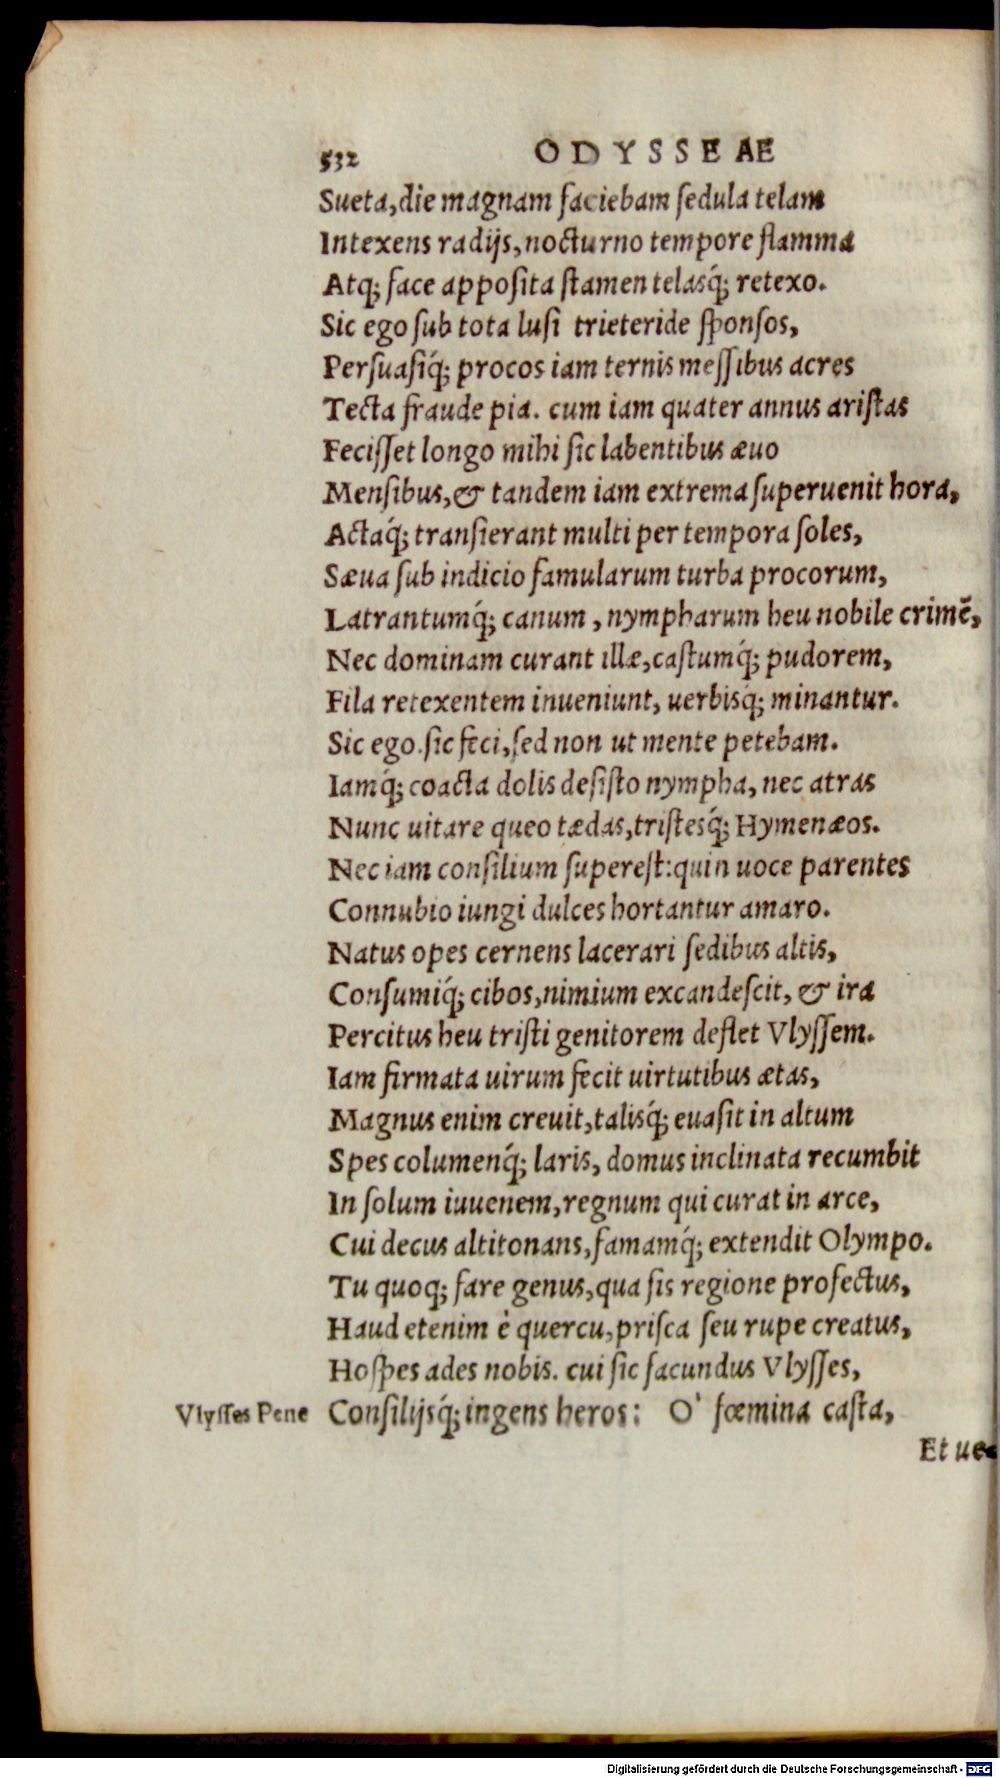 532 ODYSSEAE
Sueta, die magnam faciebam ſedula telam
Intexens radijs, nocturno tempore flamma
Atq; face appoſita ſtamen telasq́; retexo.
Sic ego ſub tota luſi trieteride ſponſos,
Perſuaſiq́; procos iam ternis meſſibus acres
Tecta fraude pia. cum iam quater annus ariſtas
Feciſſet longo mihi ſic labentibus æuo
Menſibus, & tandem iam extrema ſuperuenit hora,
Actaq́; tranſierant multi per tempora ſoles,
Sæua ſub indicio famularum turba procorum,
Latrantumq́; canum, nympharum heu nobile crimē,
Nec dominam curant illæ, caſtumq́; pudorem,
Fila retexentem inueniunt, uerbisq́; minantur.
Sic ego. ſic feci, ſed non ut mente petebam.
Iamq́; coacta dolis deſiſto nympha, nec atras
Nunc uitare queo tædas, triſtesq́; Hymenæos.
Nec iam conſilium ſupereſt: quin uoce parentes
Connubio iungi dulces hortantur amaro.
Natus opes cernens lacerari ſedibus altis,
Conſumiq́; cibos, nimium excandeſcit, & ira
Percitus heu triſti genitorem deflet Vlyſſem.
Iam firmata uirum fecit uirtutibus ætas,
Magnus enim creuit, talisq́; euaſit in altum
Spes columenq́; laris, domus inclinata recumbit
In ſolum iuuenem, regnum qui curat in arce,
Cui decus altitonans, famamq́; extendit Olympo.
Tu quoq; fare genus, qua ſis regione profectus,
Haud etenim è quercu, priſca ſeu rupe creatus,
Hoſpes ades nobis. cui ſic facundus Vlyſſes,
Vlyſſes Pene Conſilijsq́; ingens heros: O' fœmina caſta,
Et ue-
Digitalisierung gefördert durch die Deutsche Forschungsgemeinschaft - DFG